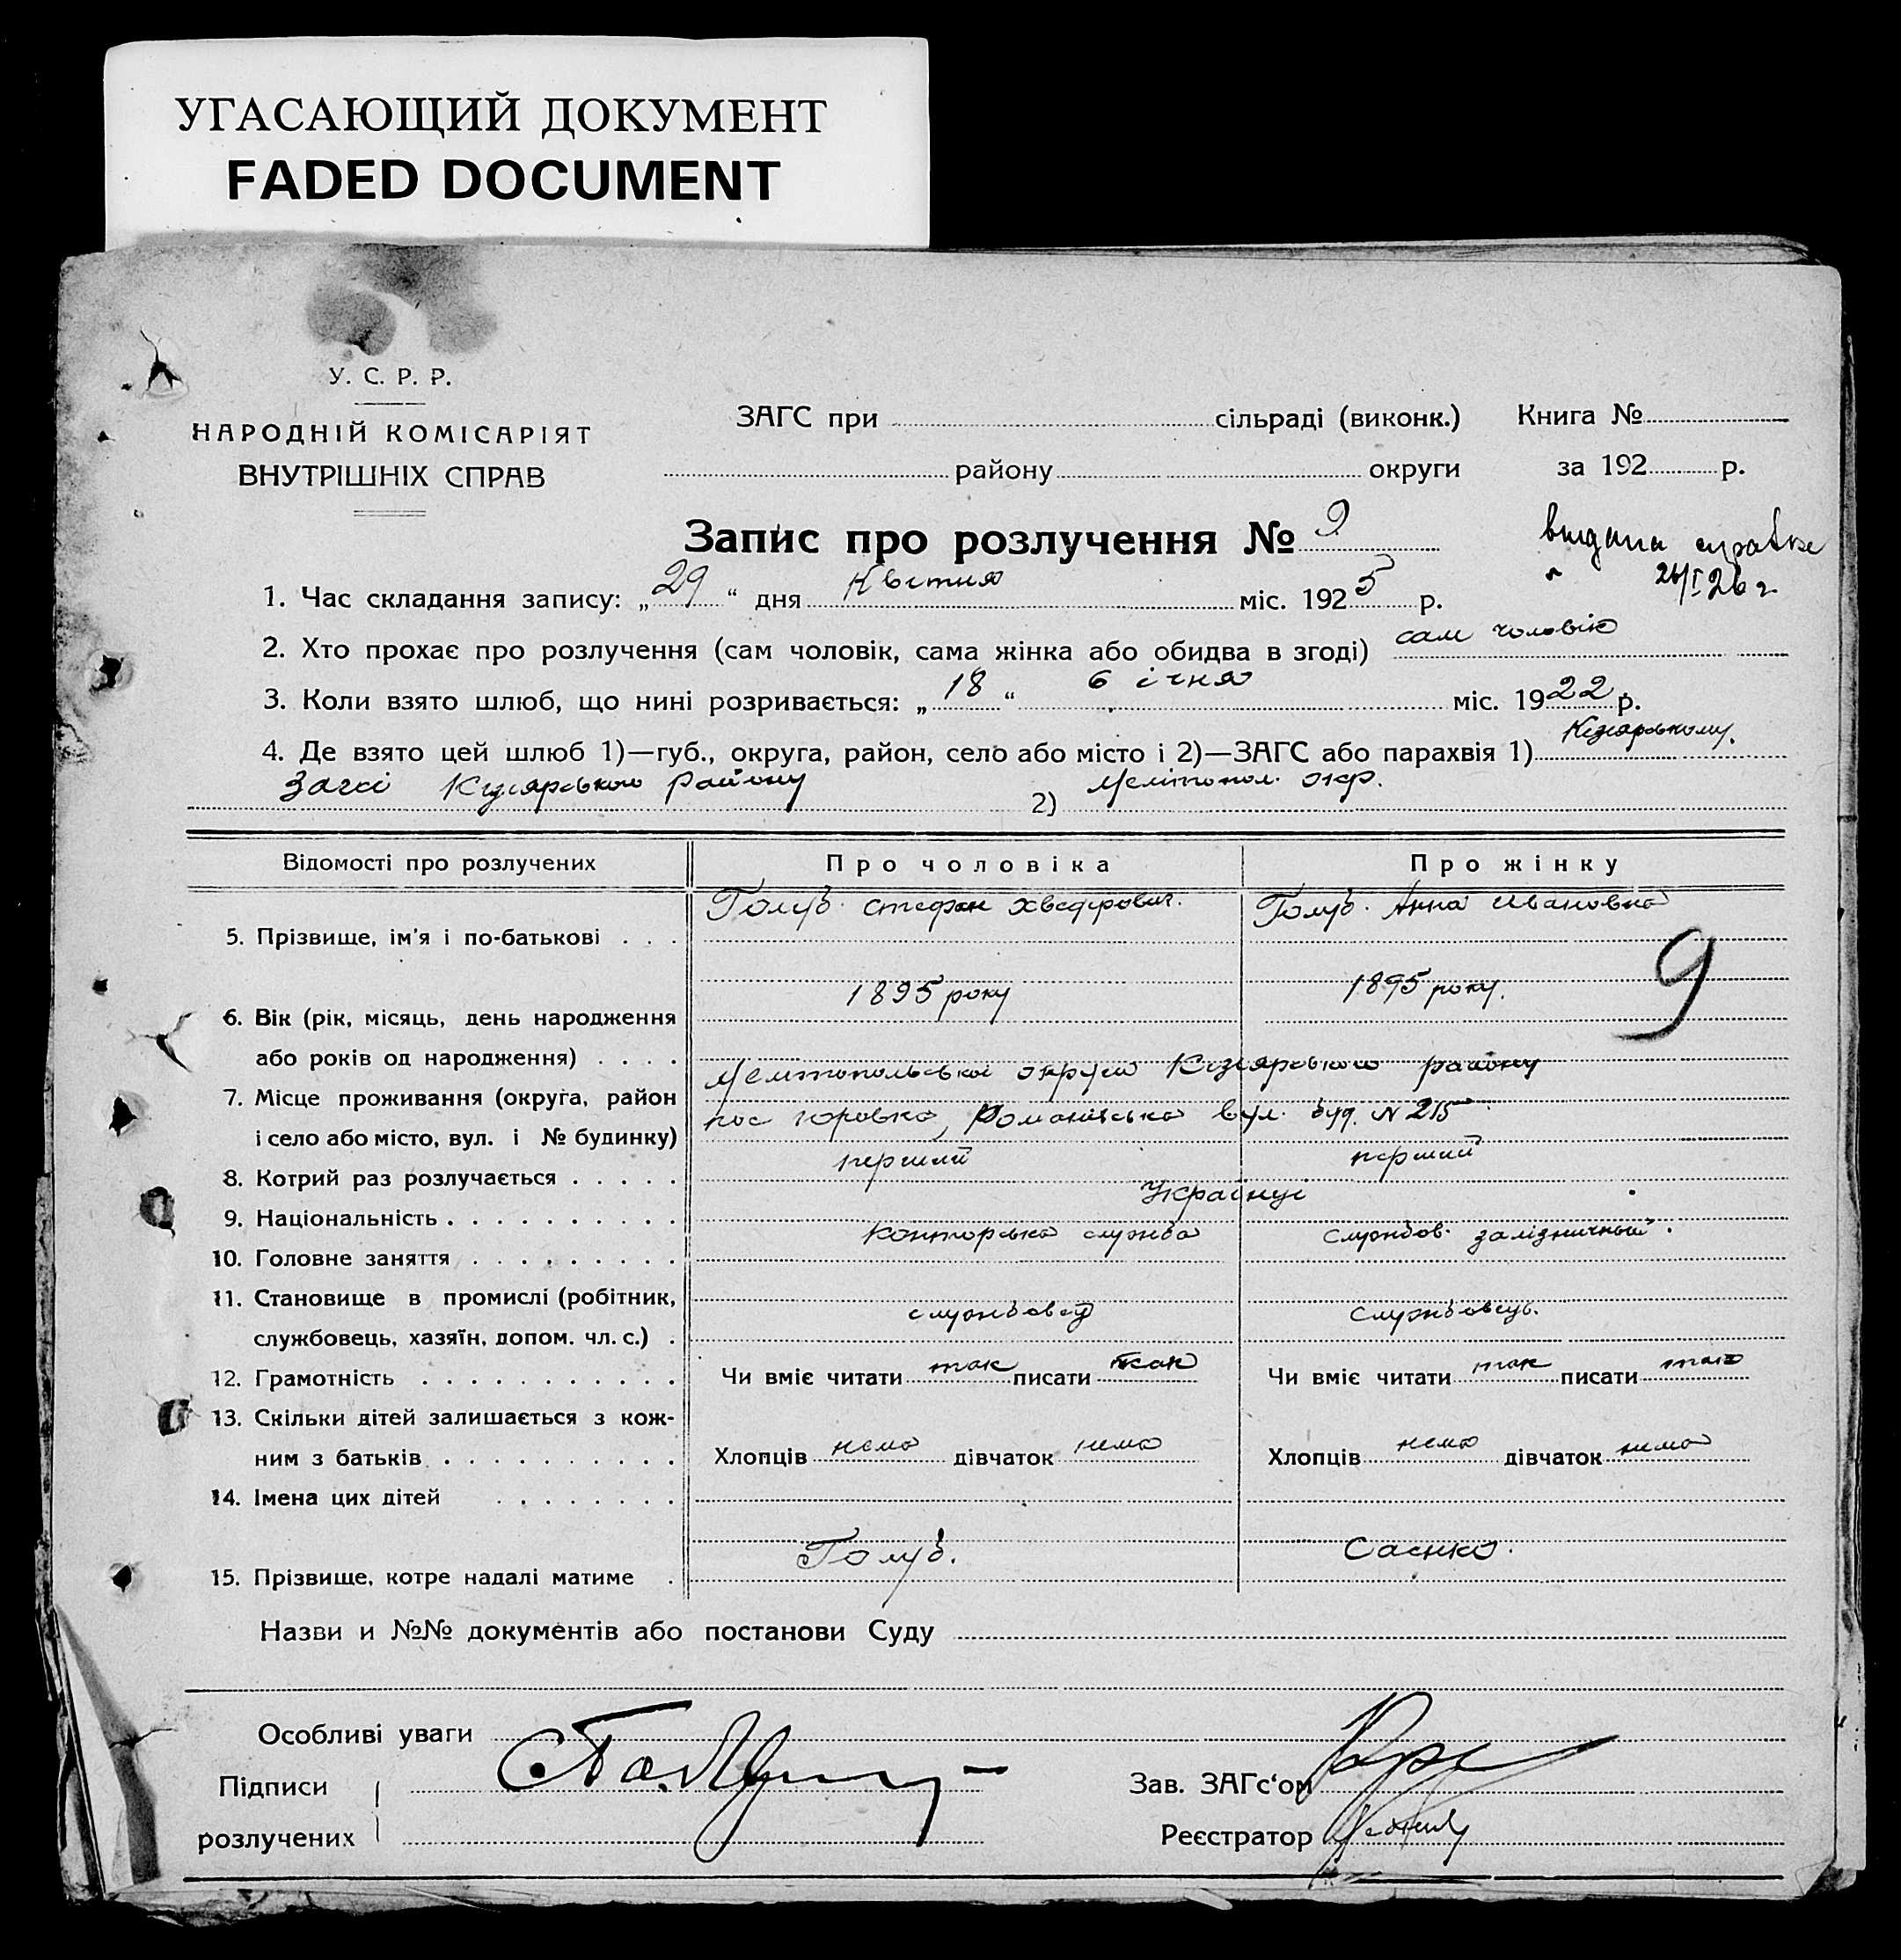 УГАСАЮЩИЙ ДОКУМЕНТ
FADED DOCUMENT
У. С. Р. Р.
НАРОДНІЙ КОМІСАРІЯТ
ВНУТРІШНІХ СПРАВ
ЗАГС при сільраді (виконк.) Книга №
району округи за 192 р.
Запис про розлучення № 9
видана справка
26/I 26 г
1. Час складання запису: „29“ дня Квітня міс. 1925 р.
2. Хто прохає про розлучення (сам чоловік, сама жінка або обидва в згоді) сам чоловік
3. Коли взято шлюб, що нині розривається: „18“ січня міс. 1922 р.
4. Де взято цей шлюб 1)—губ., округа, район, село або місто і 2)—ЗАГС або парахвія 1) Кізіярському
Загсі Кізіярського Району 2) Мелітопол. окр.
Відомості про розлучених Про чоловіка Про жінку
5. Прізвище, ім'я і по-батькові . . . Голуб Стефан Хведірович. Голуб Анна Ивановна
9
6. Вік (рік, місяць, день народження 1895 року 1895 року.
або років од народження) . . . .
7. Місце проживання (округа, район Мелітопольської округи Кізіярського району
і село або місто, вул. і № будинку) пос Юровка, Романівська вул. буд. N 215
8. Котрий раз розлучається . . . . . перший перший
9. Національність . . . . . . . . . . Українці
10. Головне заняття . . . . . . . . . Конторська служба службов. залізничный.
11. Становище в промислі (робітник,
службовець, хазяїн, допом. чл. с.) . службовец службовець.
12. Грамотність . . . . . . . . . . . Чи вміє читати так писати так Чи вміє читати так писати так
13. Скільки дітей залишається з кож-
ним з батьків . . . . . . . . . . Хлопців нема дівчаток нема Хлопців нема дівчаток нема
14. Імена цих дітей . . . . . . . .
15. Прізвище, котре надалі матиме . Голуб. Саєнко.
Назви и №№ документів або постанови Суду
Особливі уваги
Підписи
розлучених
Зав. ЗАГс‘ом
Реєстратор